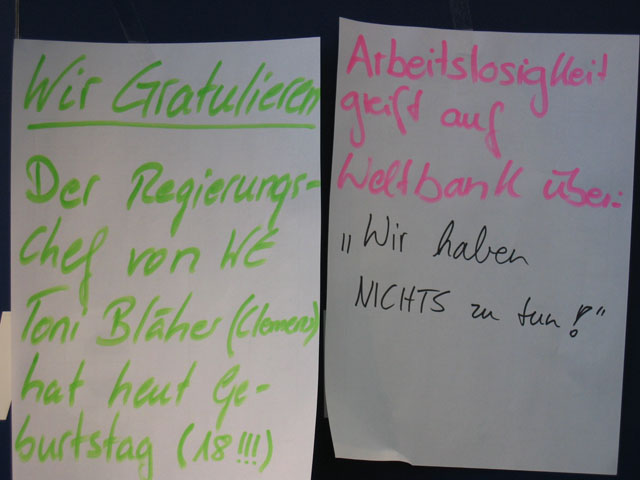 Wir Gratulieren
Der Regierungs-
Chef von WE
Toni Bläher (Clemens)
hat heut Ge-
burtstag (18!!!)
Arbeitslosigkeit
greift auf
Weltbank über:
„Wir haben
NICHTS zu tun!"